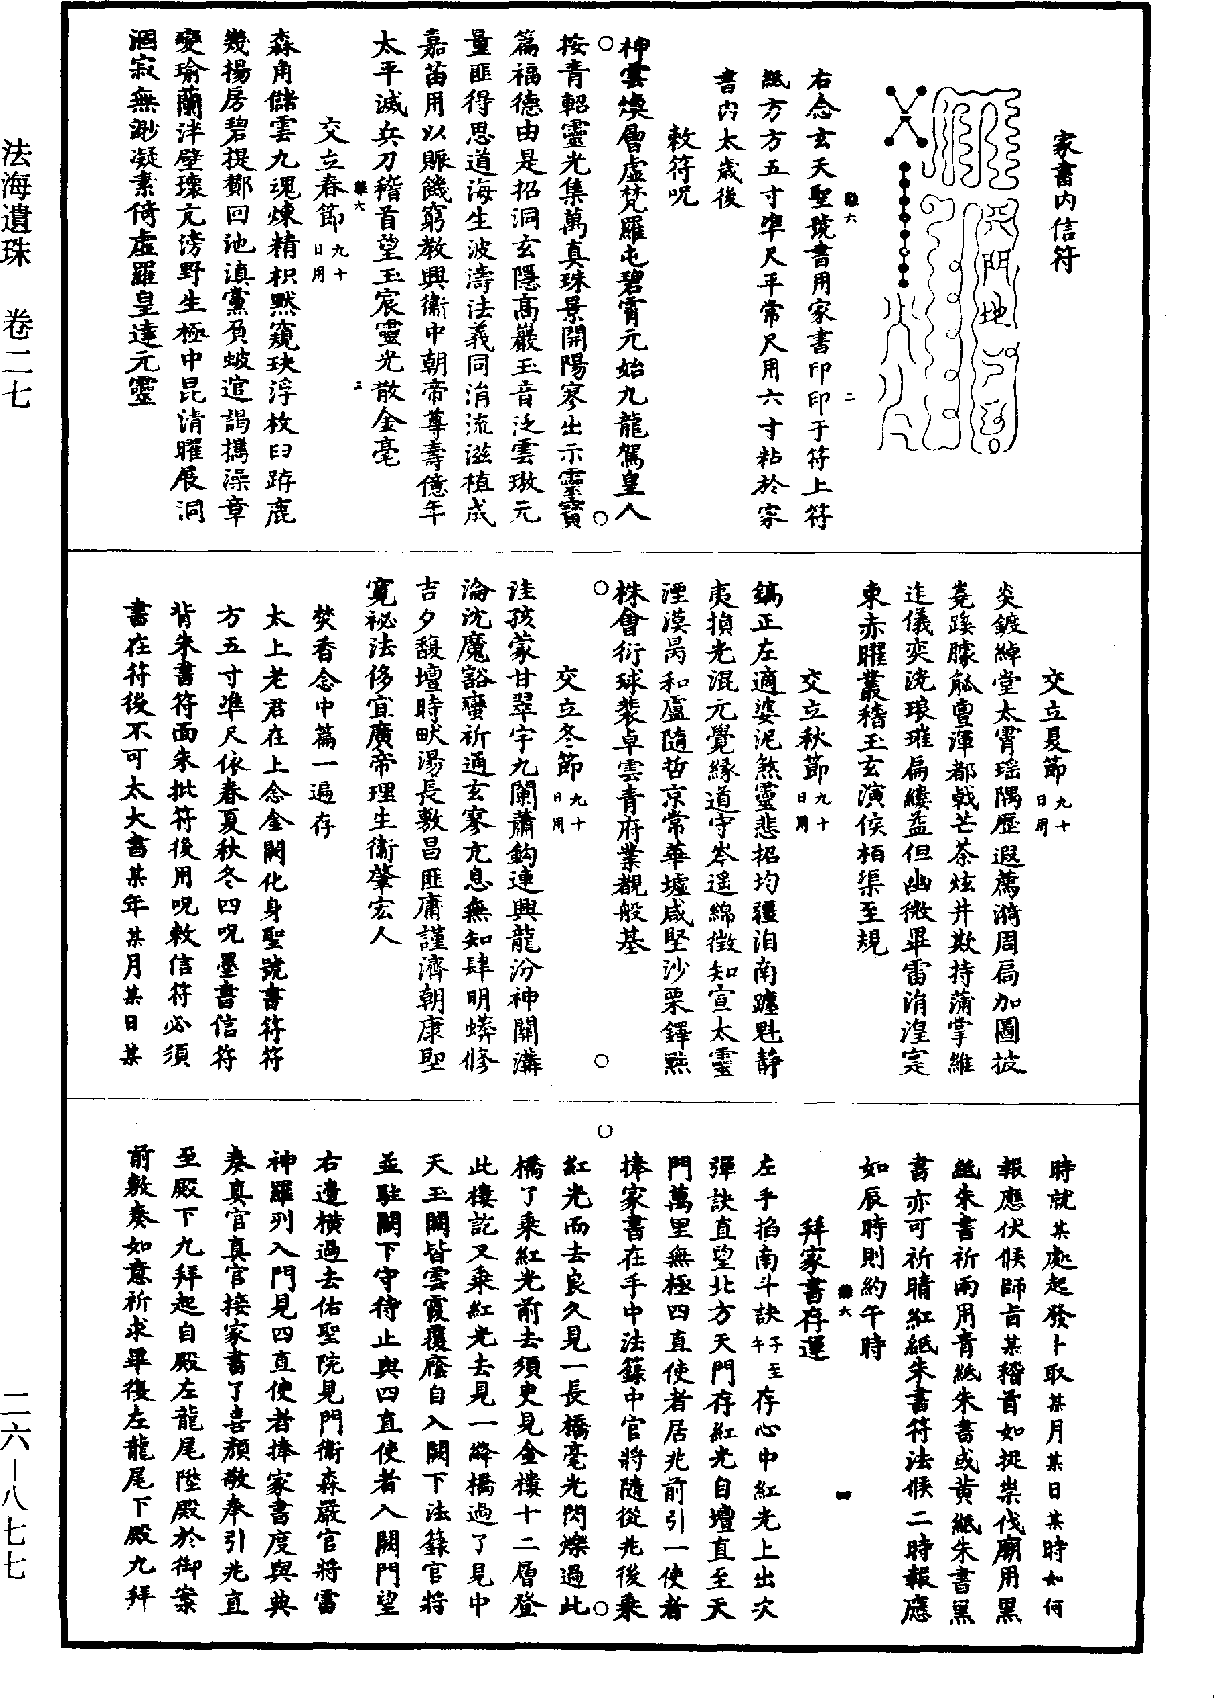 法海遺珠 卷二七
二六—八七七
家書內信符
天門地
右念玄天聖號書用家書印印于符上符
紙方方五寸準尺平常尺用六寸粘於家
書內太歲後
敕符呪
神雲煥層虛梵羅屯碧霄元始九龍駕皇人
按青軺靈光集萬真珠景開陽寥出示靈寶
篇福德由是招洞玄隱高嚴玉音泛雲璈元
量匪得思道海生波濤法義同消流滋植成
嘉苗用以賑饑窮教興衛中朝帝尊壽億年
太平滅兵刀稽首望玉宸靈光散金毫
交立春節九十日用
森角儲雲九魂煉精枳默窺玦浮枚臼跱鹿
幾揚房碧提鄒回池滇黨負蛂逭謁攜澡章
變瑜蘭泮壁瓌亢滂野生極中昆清曜展洞
涸寂無渺凝素倚虛羅皇達元靈
交立夏節九十日用
炎鍍綽堂太霄瑤隅歷遐薦漪周扃加圖披
堯蹊臄觚亶渾都戟芒荼炫井欺持蒲掌維
迬儀奕浇琅璀扁縷益但幽微畢雷消湟寔
東赤曜叢稽玉玄演俟栢渠至規
交立秋節九十日用
鎬正左適婆泥煞靈悲招均疆洎南躔魁靜
夷損光混元覺緣道守岑遥綿徵知宣太靈
湮漠昺和盧隨哲京常華墟咸堅沙栗鐸㸃
株會衍球裝卓雲青府業覩般基
交立冬節九十日用
洼孩蒙甘翠宇九闌蕭鈎連興龍汾神關潾
淪沈魔豁蠻祈通玄寥亢息無知肆明蟒修
吉夕馥壇時畎湯長敷昌匪庸謹濟朝康聖
寬祕法侈宜廣帝理生衛肇宏人
焚香念中篇一遍存
太上老君在上念金闕化身聖號書符符
方五寸準尺依春夏秋冬四呪墨書信符
背朱書符面朱批符後用呪敕信符必須
書在符後不可太大書某年某月某日某
時就某處起發卜取某月某日某時如何
報應伏候師旨某稽首如捉祟伐廟用黑
紙朱書祈雨用青紙朱書或黃紙朱書黑
書亦可祈晴紅紙朱書符法候二時報應
如辰時則約午時
拜家書存運
左手掐南斗訣子至午存心中紅光上出次
彈訣直望北方天門存紅光自壇直至天
門萬里無極四直使者居兆前引一使者
捧家書在手中法籙中官將隨從兆後乘
紅光而去良久見一長橋毫光閃爍過此
橋了乘紅光前去須臾見金樓十二層登
此樓訖又乘紅光去見一絳橋過了見中
天玉闕皆雲霞覆廕自入闕下法籙官將
並駐闕下守待止與四直使者入闕門望
右邊橫過去佑聖院見門衛森嚴官將雷
神羅列入門見四直使者捧家書度與典
奏真官真官接家書了喜顏敬奉引兆直
至殿下九拜起自殿左龍尾陛殿於御案
前敷奏如意祈求畢復左龍尾下殿九拜